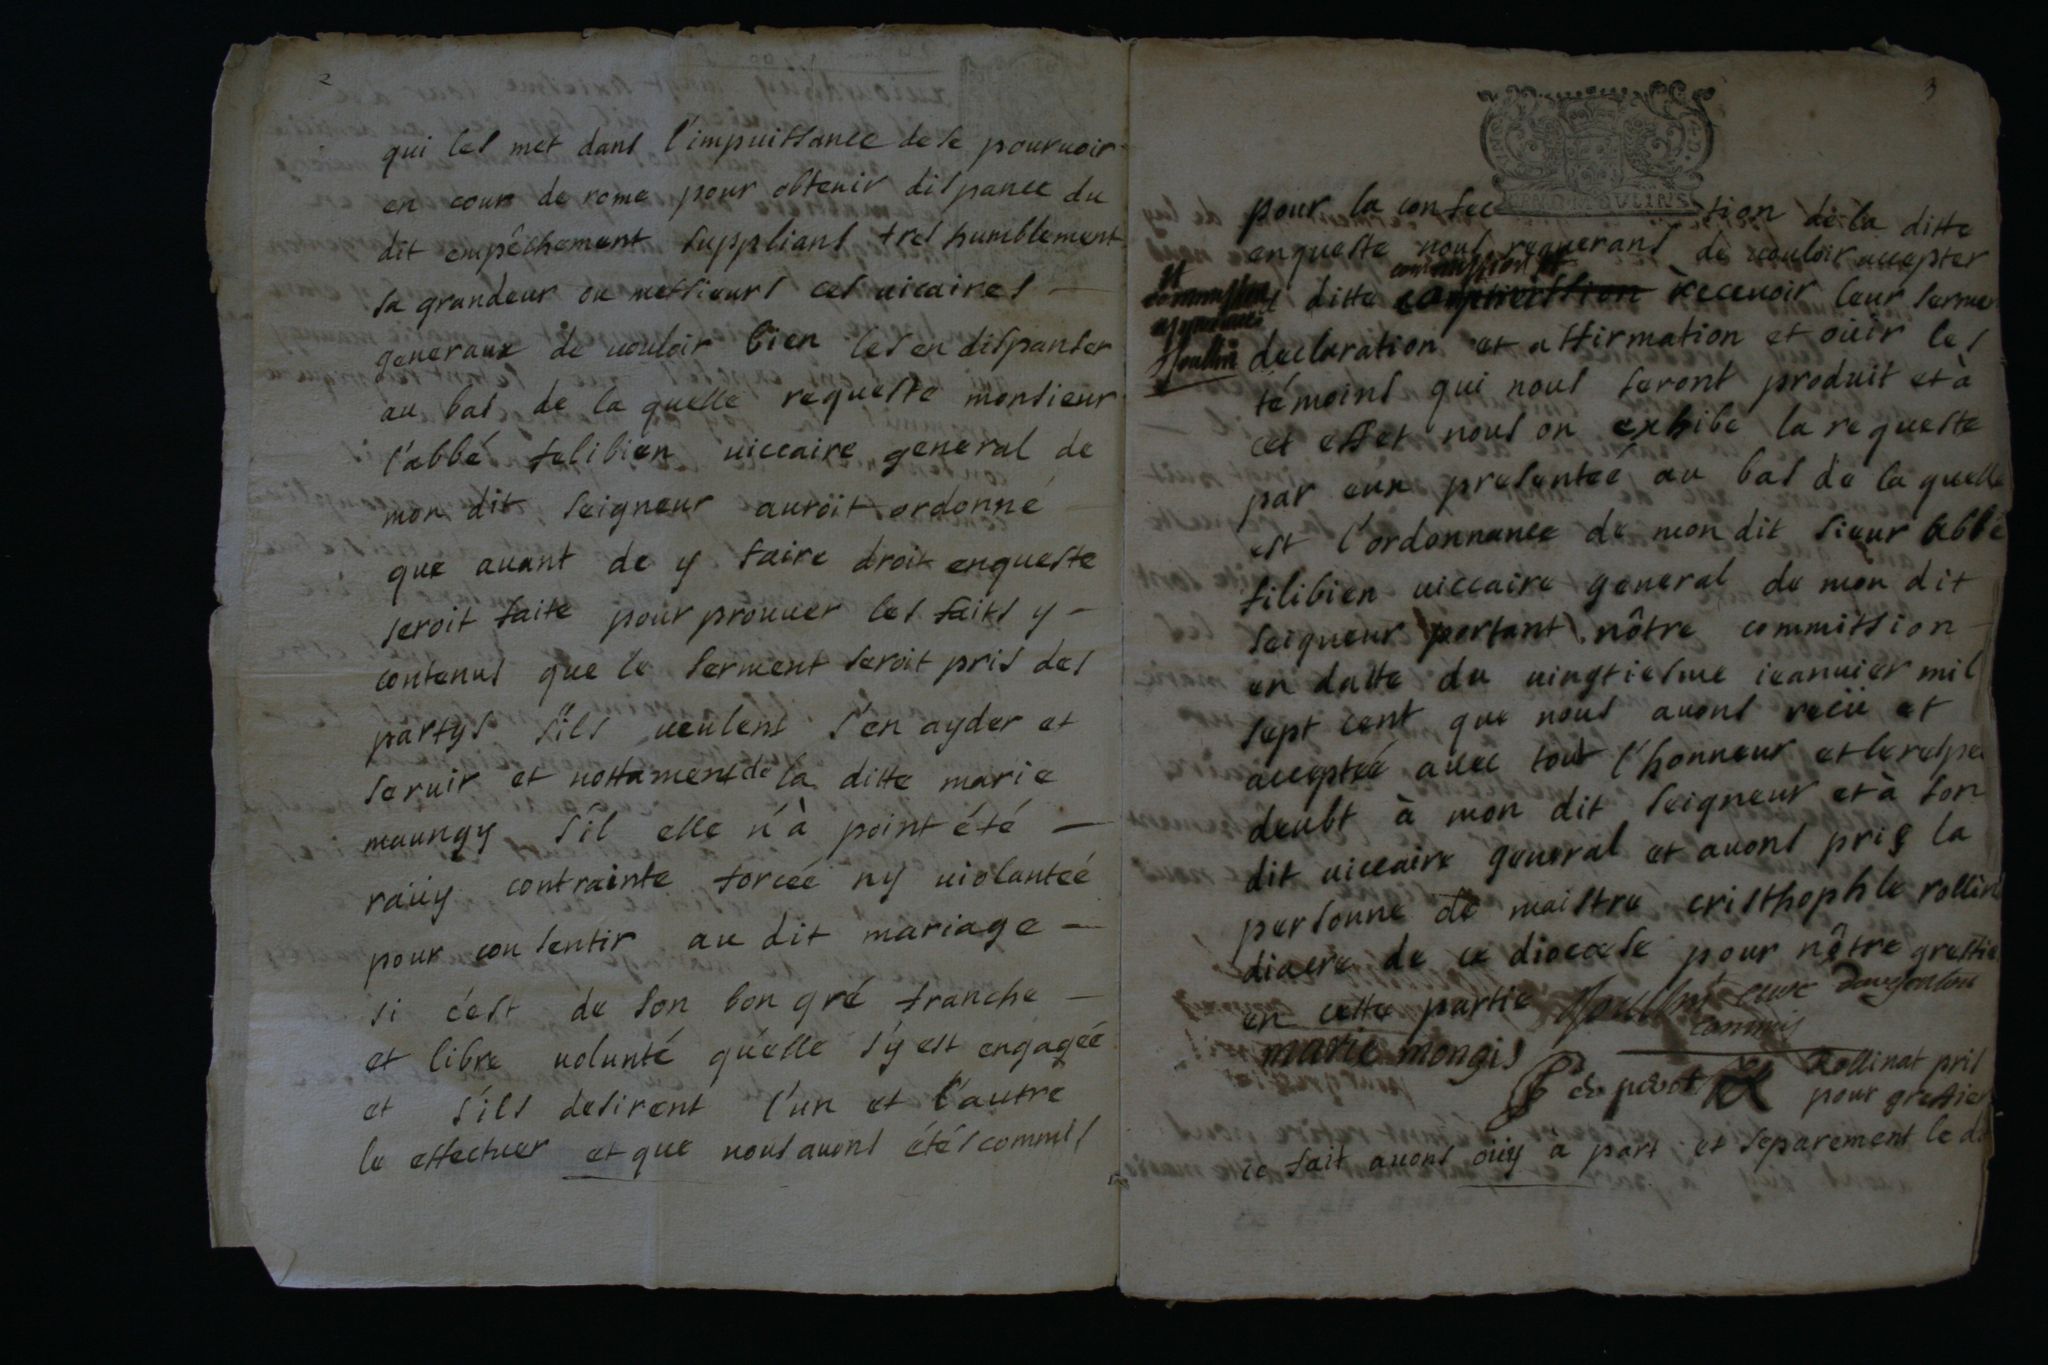 2
qui les met dans l'impuissance de se pouruoir
en cour de rome pour obtenir dispance du
dit empêchement suppliant tres humblement
sa grandeur ou messieurs ces uicaires
generaux de uouloir bien les en dispanser
au bas de la quelle requeste monsieur
l'abbé felibien uiccaire general de
mon dit seigneur auroit ordonné
que auant de y faire droit enqueste
seroit faite pour prouuer les faits y
contenus que le serment seroit pris des
partys s'ils ueulent s'en ayder et
seruir et nottament de la ditte marie
maungy s'il elle n'à point été
rauy contrainte forceé ny uiolanteé
pour consentir au dit mariage
si c'est de son bon gré franche
et libre uolunté qu'elle s'y est engageé
et s'ils desirent l'un et l'autre
le effectuer et que nous auons étés commis
3
GEND MOVLINS
pour la confec tion de la ditte
enqueste nous requerant de uouloir accepter
commission et
ditte recenoir leur serment
declaration et affirmation et oüir les
témoins qui nous seront produit et à
cet effet nous on exhibe la requeste
par eux presenteé au bas de la quelle
est l'ordonnance de mon dit sieur abbé
filibien uiccaire general de mon dit
seigneur portant nôtre commission
en datte du uingtiesme ieanuier mil
sept cent que nous auons recü et
accepteé auec tout l'honneur et le respe
deubt à mon dit seigneur et à son
dit uiccaire general et auons pris la
personne de maistre cristhophle rollin
diacre de ce diocese pour nôtre greffie
en cette partie
commis
marie mongis
Rollinat pris
pour greffier
ce fait auons oüy à part et separement le d